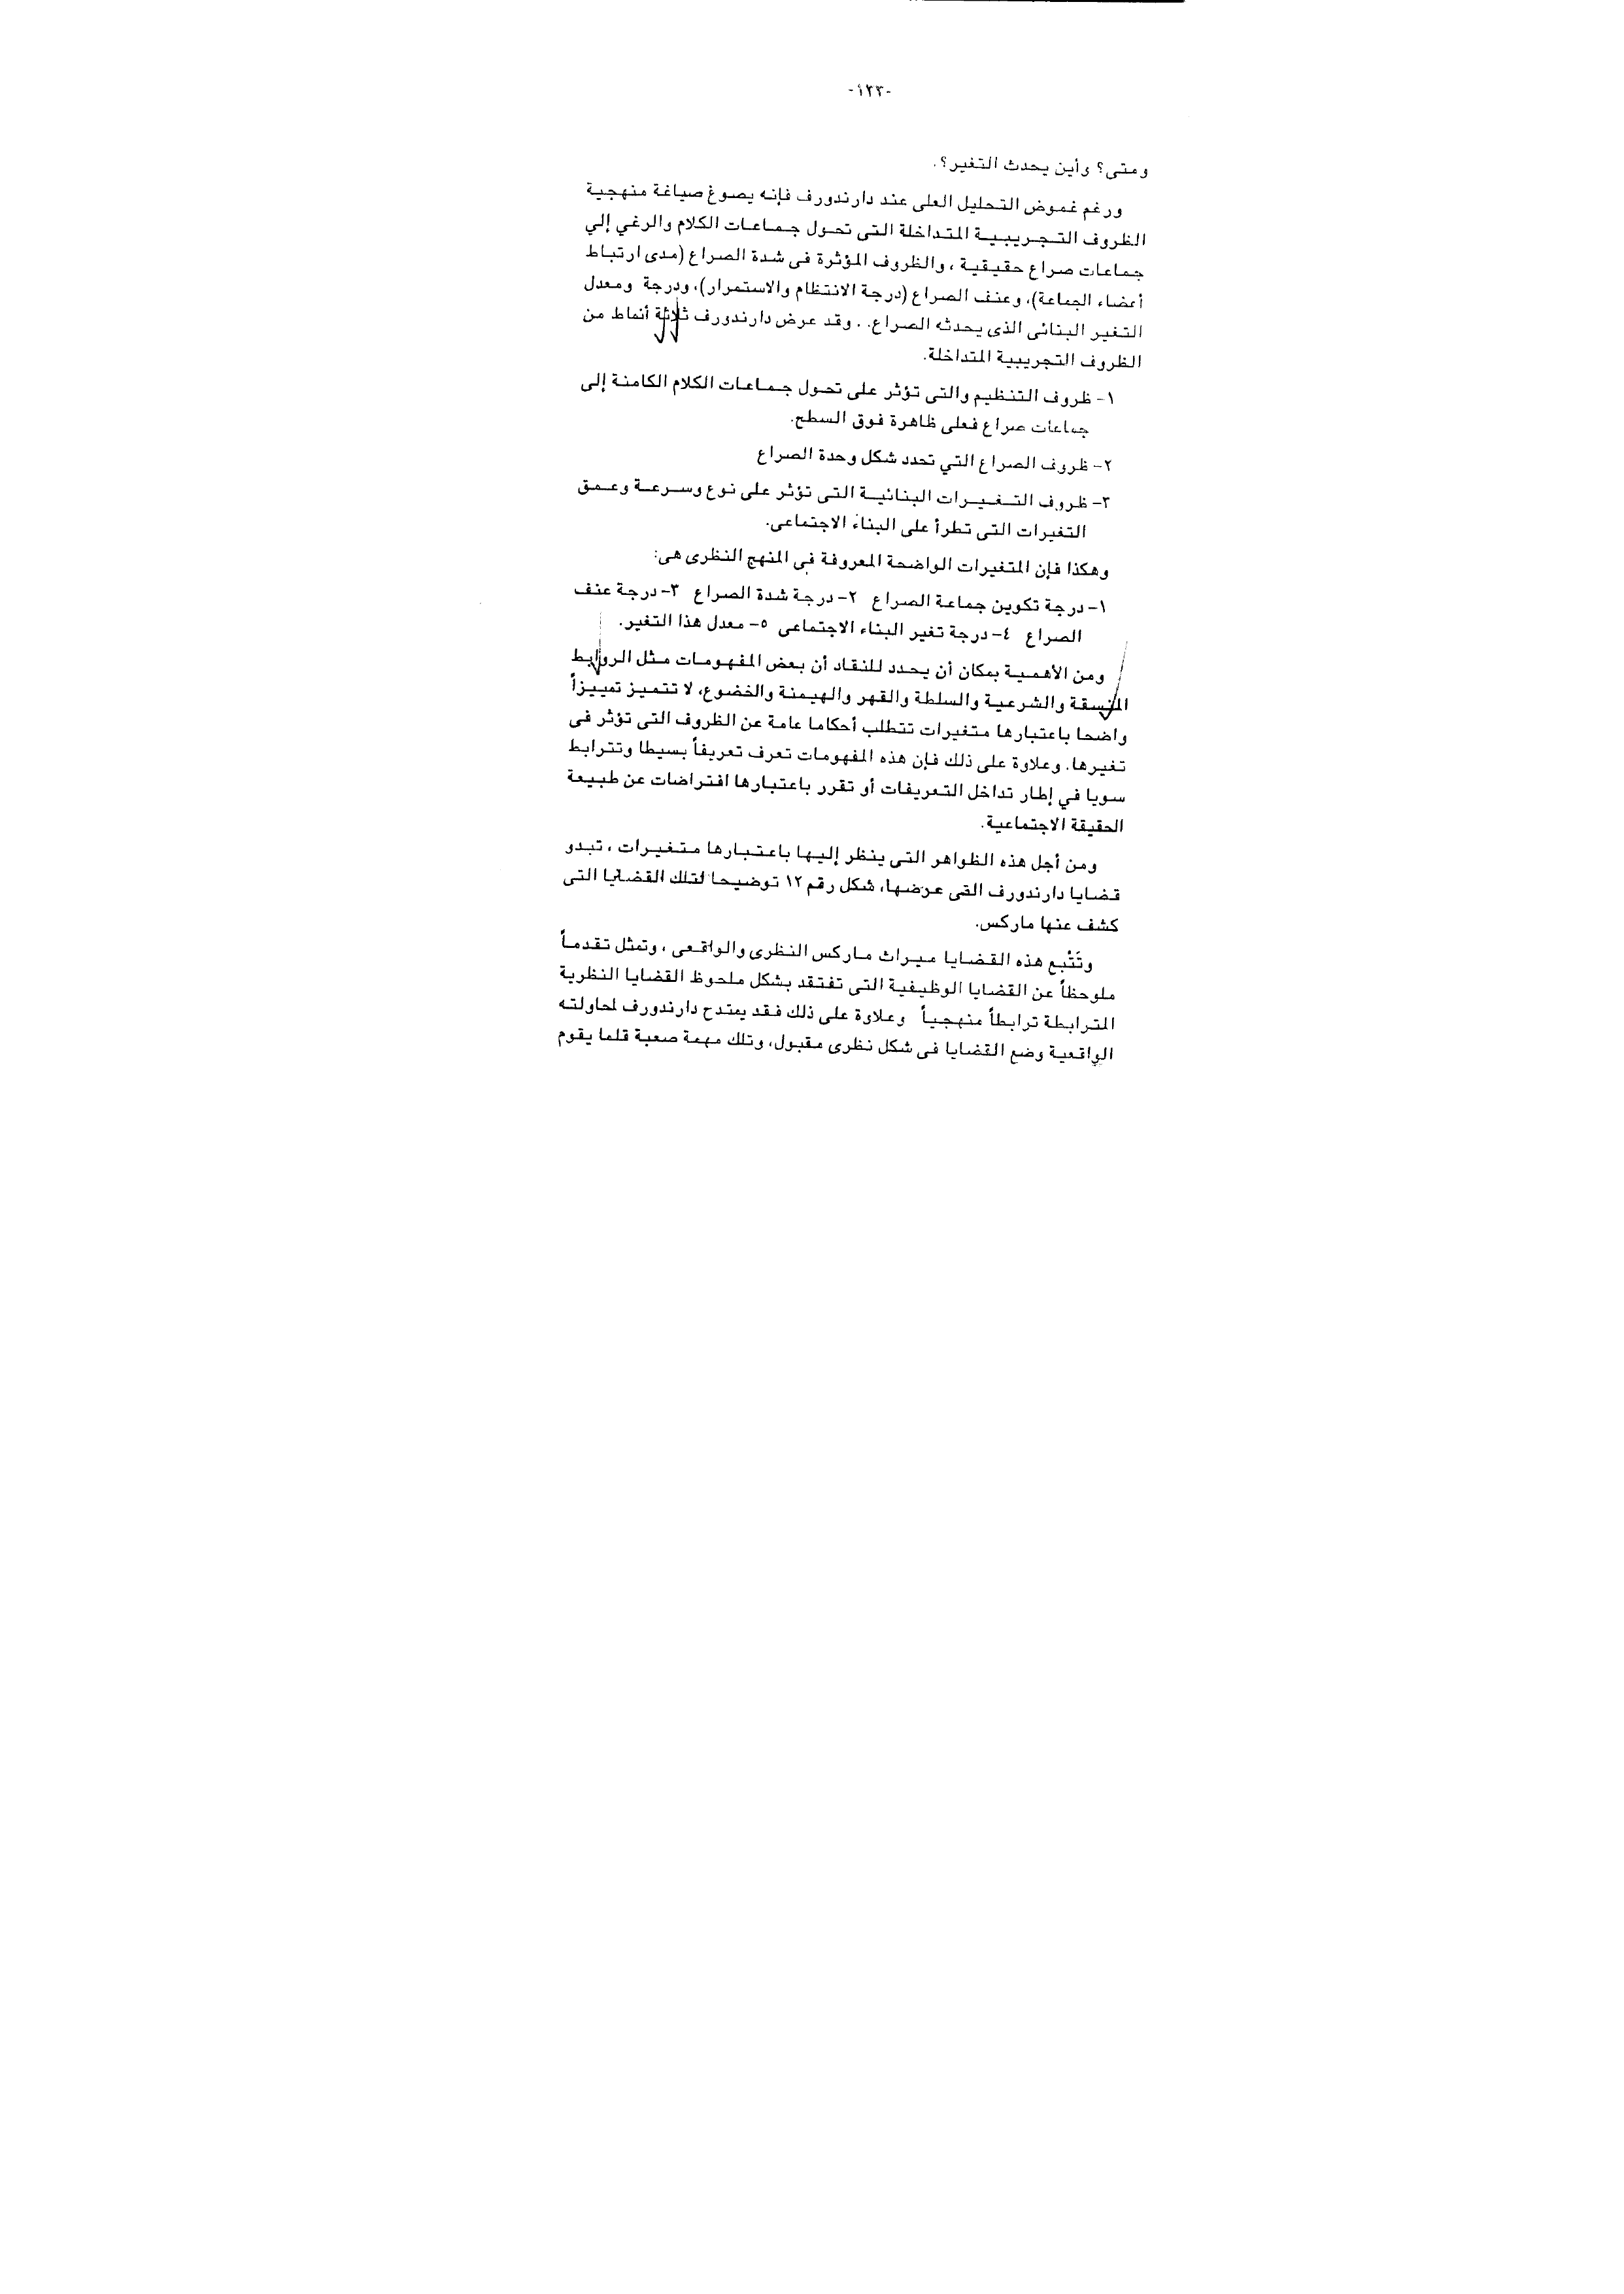 -١٢٣-
ومتى؟ وأين يحدث التغير؟.
ورغم غموض التحليل العلى عند دارندورف فإنه يصوغ صياغة منهجية
الظروف التجريبية المتداخلة التى تحول جماعات الكلام والرغي إلي
جماعات صراع حقيقية ، والظروف المؤثرة فى شدة الصراع (مدى ارتباط
أعضاء الجماعة)، وعنف الصراع (درجة الانتظام والاستمرار)، ودرجة ومعدل
التغير البنائى الذى يحدثه الصراع. . وقد عرض دارندورف ثلاثة أنماط من
الظروف التجريبية المتداخلة.
١- ظروف التنظيم والتى تؤثر على تحول جماعات الكلام الكامنة إلى
جماعات صراع فعلى ظاهرة فوق السطح.
٢- ظروف الصراع التي تحدد شكل وحدة الصراع
٣- ظروف التغيرات البنائية التى تؤثر على نوع وسرعة وعمق
التغيرات التى تطرأ على البناء الاجتماعى.
وهكذا فإن المتغيرات الواضحة المعروفة فى المنهج النظرى هى:
١- درجة تكوين جماعة الصراع ٢- درجة شدة الصراع ٣- درجة عنف
الصراع ٤- درجة تغير البناء الاجتماعى ٥- معدل هذا التغير.
ومن الأهمية بمكان أن يحدد للنقاد أن بعض المفهومات مثل الروابط
المنسقة والشرعية والسلطة والقهر والهيمنة والخضوع، لا تتميز تمييزاً
واضحا باعتبارها متغيرات تتطلب أحكاما عامة عن الظروف التى تؤثر فى
تغيرها. وعلاوة على ذلك فإن هذه المفهومات تعرف تعريفاً بسيطا وتترابط
سويا في إطار تداخل التعريفات أو تقرر باعتبارها افتراضات عن طبيعة
الحقيقة الاجتماعية.
ومن أجل هذه الظواهر التى ينظر إليها باعتبارها متغيرات ، تبدو
قضايا دارندورف التى عرضها، شكل رقم ١٢ توضيحا لتلك القضايا التى
كشف عنها ماركس.
وتَتْبع هذه القضايا ميراث ماركس النظرى والواقعى ، وتمثل تقدماً
ملوحظاً عن القضايا الوظيفية التى تفتقد بشكل ملحوظ القضايا النظرية
المترابطة ترابطاً منهجياً وعلاوة على ذلك فقد يمتدح دارندورف لمحاولته
الواقعية وضع القضايا فى شكل نظرى مقبول، وتلك مهمة صعبة قلما يقوم